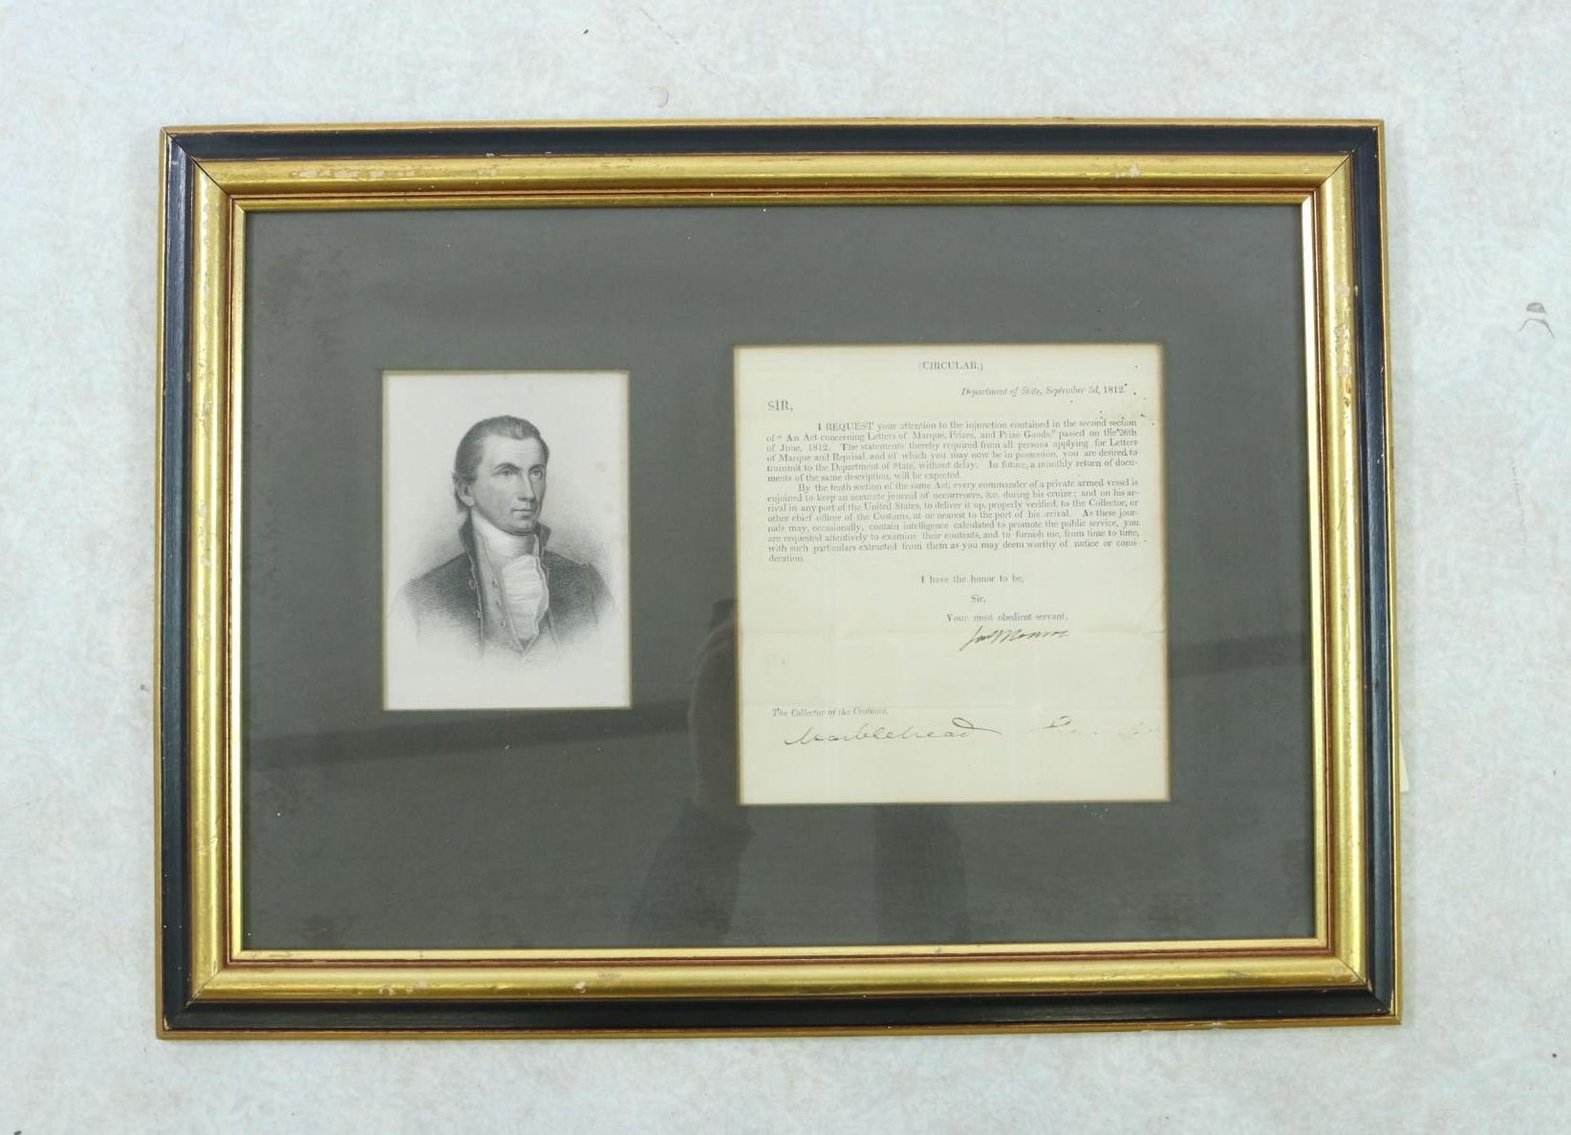 (CIRCULAR.)
Department of State, September 3d, 1812.
SIR,
I REQUEST your attention to the injunction contained in the second section
of " An Act concerning Letters of Marque, Prizes, and Prize Goods," passed on the 26th
of June, 1812. The statements thereby required from all persons applying for Letters
of Marque and Reprisal, and of which you may now be in possession, you are desired to
transmit to the Department of State, without delay. In future, a monthly return of docu-
ments of the same description, will be expected.
By the tenth section of the same Act, every commander of a private armed vessel is
enjoined to keep an accurate journal of occurrences, &c. during his cruize; and on his ar-
rival in any port of the United States, to deliver it up, properly verified, to the Collector, or
other chief officer of the Customs, at or nearest to the port of his arrival. As these jour-
nals may, occasionally, contain intelligence calculated to promote the public service, you
are requested attentively to examine their contents, and to furnish me, from time to time,
with such particulars extracted from them as you may deem worthy of notice or consi-
deration.
I have the honor to be,
Sir,
Your most obedient servant,
Jas Monroe
The Collector of the Customs,
Marblehead